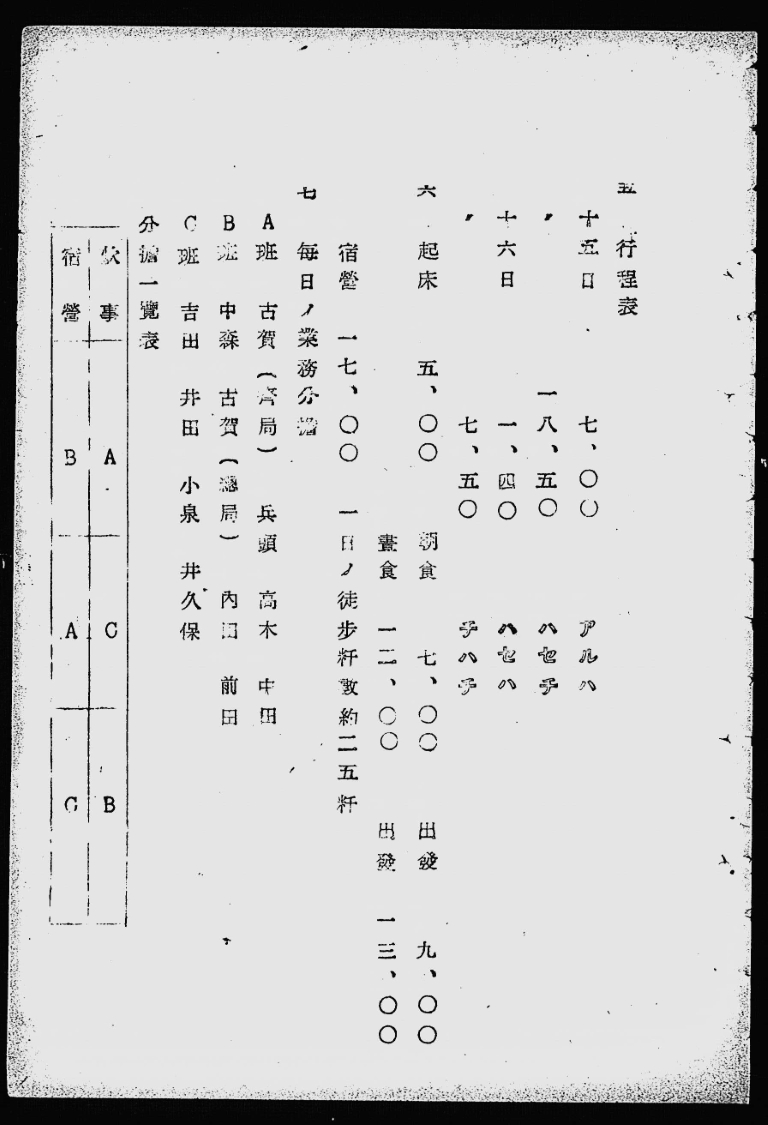 五 行程表
十五日 七、〇〇 アルハ
〃 一八、五〇 ハセチ
十六日 一、四〇 ハセハ
〃 七、五〇 チハチ
六 起床 五、〇〇 朝食 七、〇〇 出發 九、〇〇
晝食 一二、〇〇 出發 一三、〇〇
宿營 一七、〇〇 一日ノ徒步粁數約二五粁
七 每日ノ業務分擔
A班 古賀(齊局) 兵頭 高木 中田
B班 中森 古賀(總局) 內田 前田
C班 吉田 井田 小泉 井久保
分擔一覽表
炊事 A C B
宿營 B A C